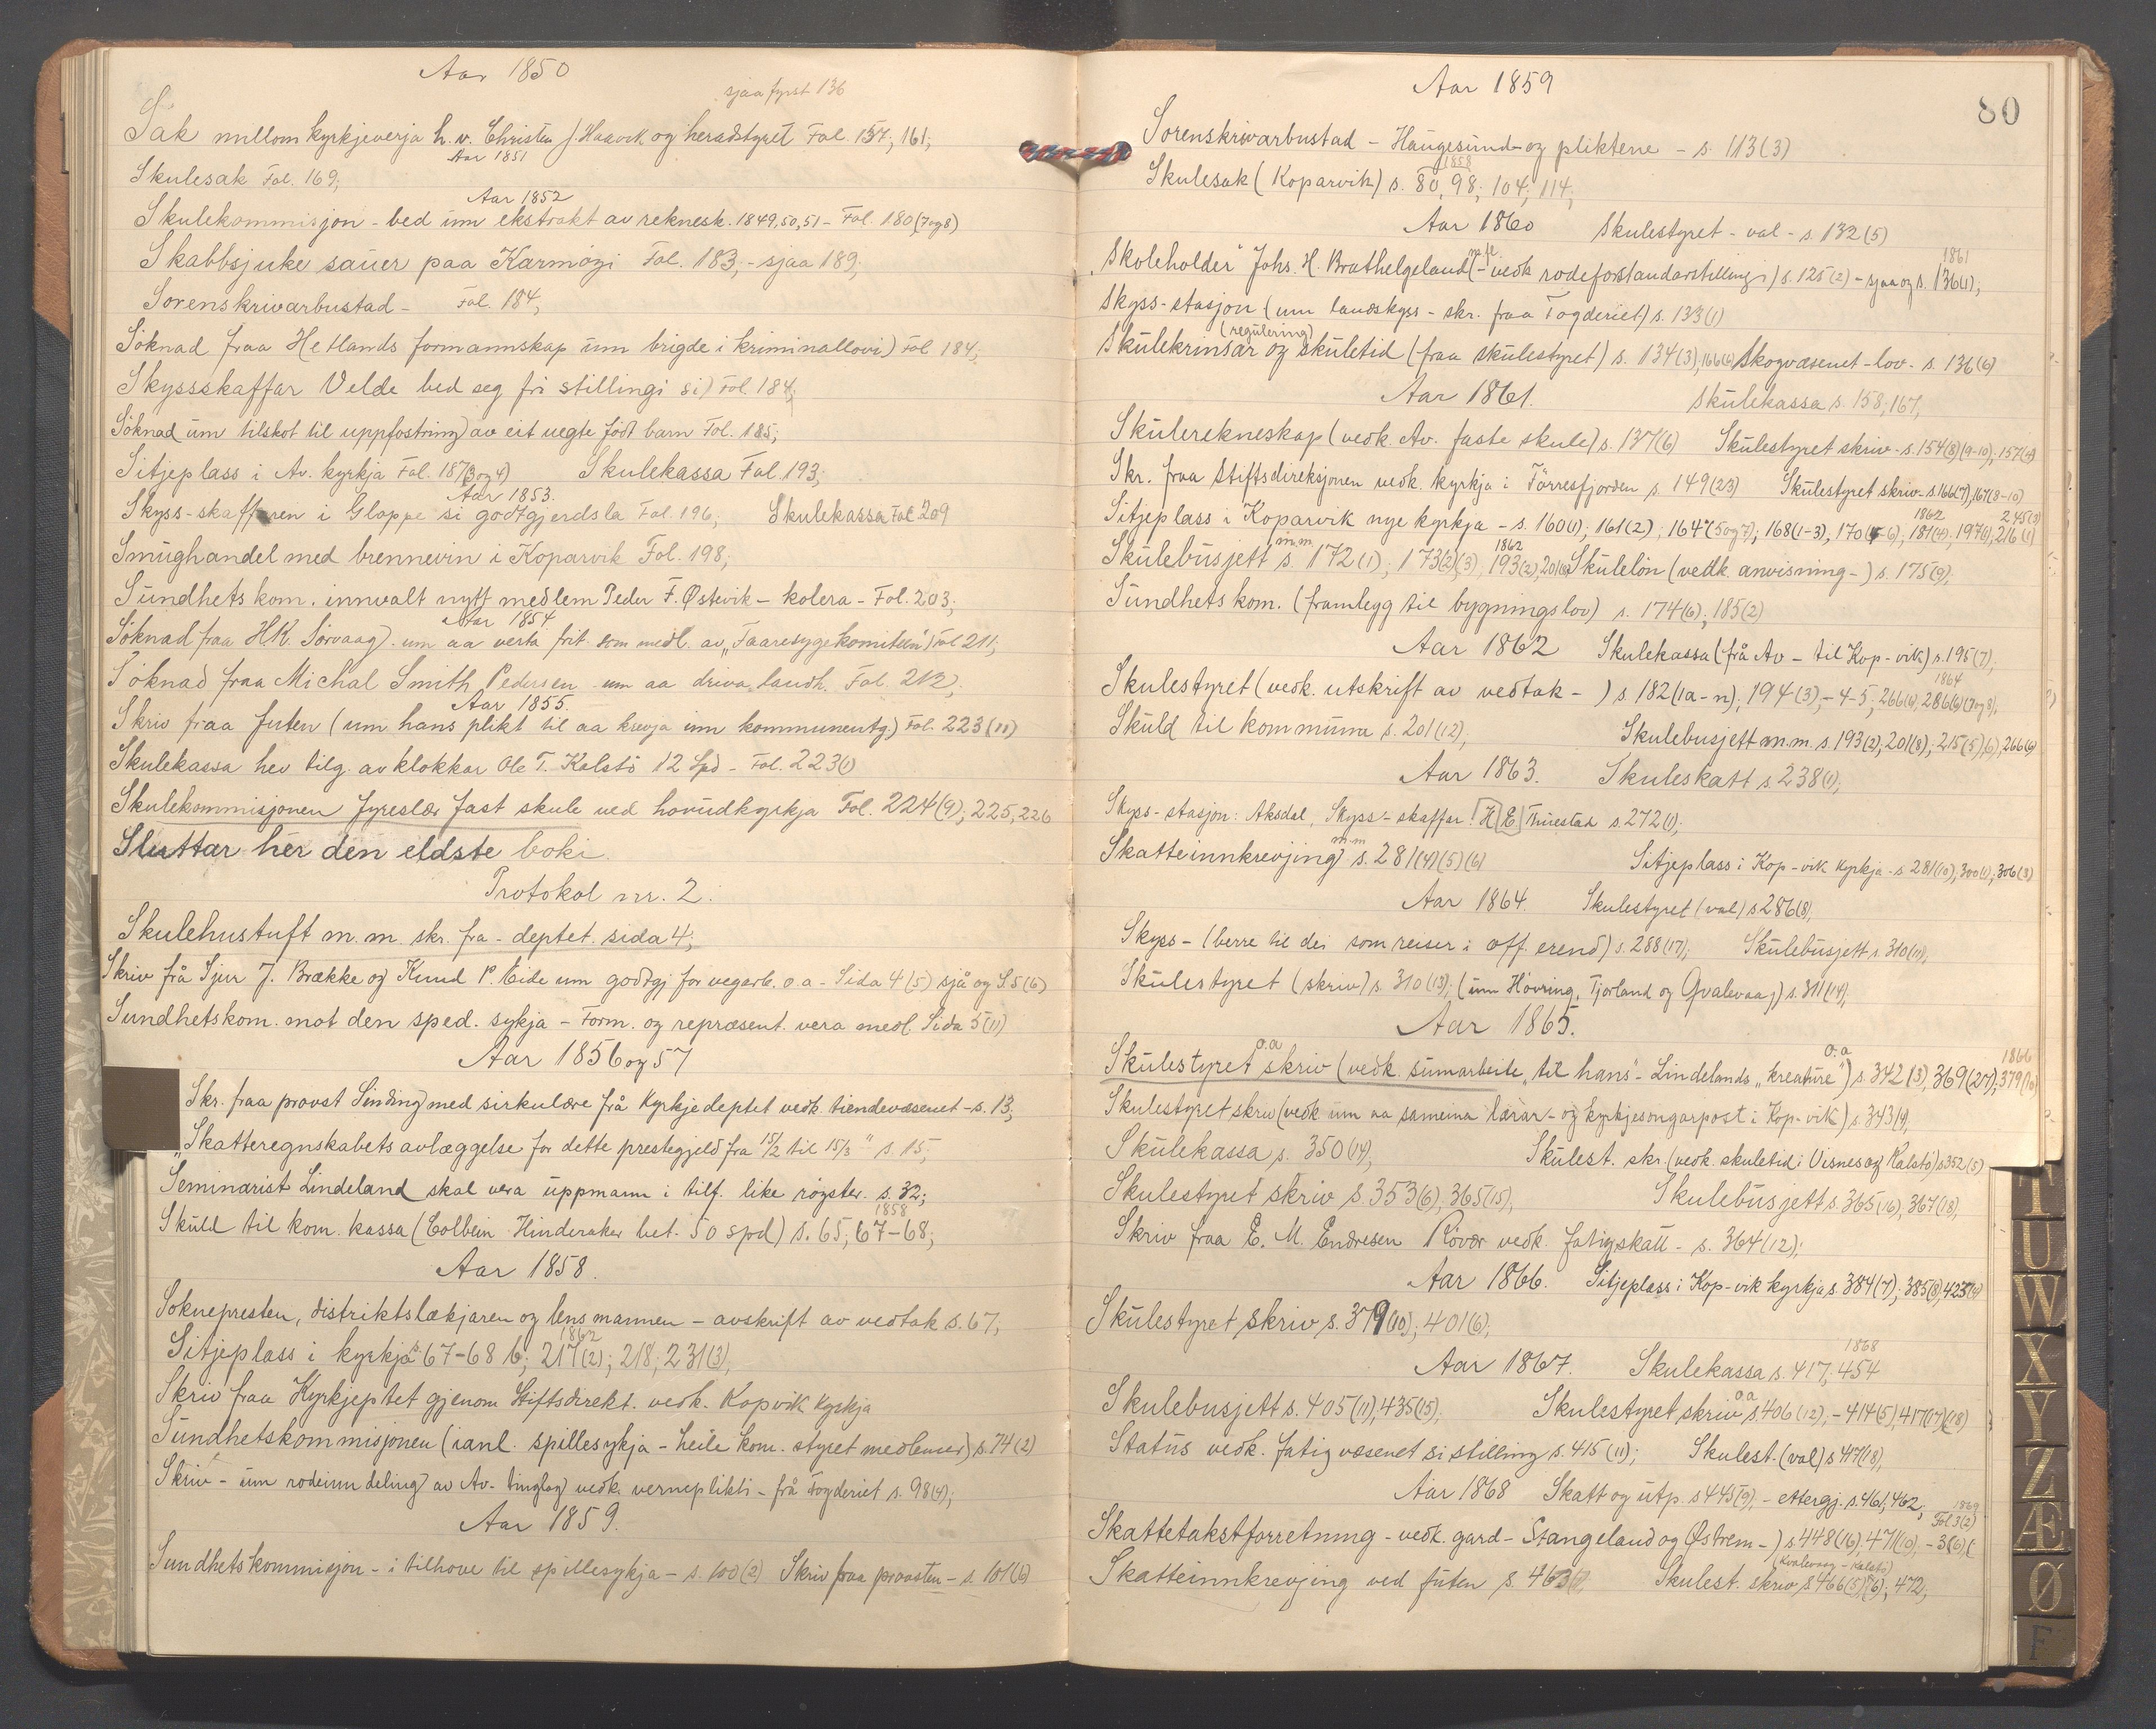 Aar 1850
sjaa fyrst 136
Sak millom kyrkjeverja h. v. Christen J. Haavik og heradstyret Fol. 157; 161;
Aar 1851
Skulesak Fol. 169;
Aar 1852
Skulekommisjon - bed um ekstrakt av reknesk. 1849, 50, 51 - Fol. 180 (7og8)
Skabbsjuke sauer paa Karmøyi Fol. 183; - sjaa 189;
Sorenskrivarbustad - Fol. 184,
Søknad fraa Hetlands formannskap um brigde i kriminallovi) Fol 184;
Skyssskaffar Velde bed seg fri stillingi si) Fol. 184;
Søknad um tilskot til uppfostring av eit uegte født barn Fol. 185;
Sitjeplass i Av. kyrkja Fol. 187 (3og 4) Skulekassa Fol. 193;
Aar 1853.
Skyss-skaffaren i Gloppe si godtgjerdsla Fol. 196; Skulekassa Fol. 209
Smughandel med brennevin i Koparvik Fol. 198;
Sundhetskom. innvalt nytt medlem Peder F. Østevik - kolera - Fol. 203;
Aar 1854
Søknad fraa H.K. Sørvaag. um aa verta frit som medl. av „Faaresygekomiteen") Fol 211;
Søknad fraa Michal Smith Pedersen um aa driva landh. Fol. 212;
Aar 1855.
Skriv fraa futen (um hans plikt til aa krevja inn kommuneutg.) Fol. 223 (11)
Skulekassa hev tilg. av klokkar Ole T. Kalstø 12 Spd - Fol. 223(1)
Skulekommisjonen fyreslær fast skule ved hovudkyrkja Fol. 224(9), 225, 226
Sluttar her den eldste boki.
Protokol nr. 2.
Skulehustuft m. m. skr. fra - deptet. sida 4;
Skriv frå Sjur J. Brække og Knud P. Eide um godtgj for vegarb. o.a - Sida 4 (5) sjå og S. 5 (6)
Sundhetskom. mot den sped. sykja - Form. og repræsent. vera medl. Sida 5 (11)
Aar 1856 og 57
Skr. fraa provst Sinding med sirkulære frå Kyrkjedeptet vedk. tiendevæsenet - s. 13;
„Skatteregnskabets avlæggelse for dette prestegjeld fra 15/2 til 15/3" s. 15;
Seminarist Lindeland skal vera uppmann i tilf. like røyster. s. 32;
1858
Skuld til kom. kassa (Colbein Hinderaker bet. 50 spd) s. 65; 67-68;
Aar 1858.
Soknepresten, distriktslækjaren og lensmannen - avskrift av vedtak s. 67;
1862
Sitjeplass i kyrkja s. 67-68 b; 217(2); 218; 231(3),
Skriv fraa Kyrkjeptet gjenom Stiftsdirekt. vedk. Kopvik kyrkja
Sundhetskommisjonen (ianl. spillesykja - heile kom. styret medlemer) s. 74 (2)
Skriv - um rodeinndeling av Av. tinglag vedk. verneplikti - frå Fogderiet s. 98(4);
Aar 1859.
Sundhetskommisjon - i tilhove til spillesykja - s. 100(2) Skriv fraa provsten - s. 101(6)
80
Aar 1859
Sorenskrivarbustad - Haugesund-og pliktene - s. 113(3)
1858
Skulesak (Koparvik) s. 80, 98; 104; 114;
Aar 1860 Skulestyret - val - s. 132 (5)
m.fl. 1861
„Skoleholder" Johs. H. Brathelgeland (- vedk rodeforstandarstillingi) s. 125 (2) - sjaa og s. 136(1);
Skyss-stasjon (um landskyss - skr. fraa Fogderiet) s. 133 (1)
(regulering)
Skulekrinsar og skuletid (fraa skulestyret) s. 134(3), 166(6) Skogvæsenet-lov - s. 136(6)
Aar 1861. Skulekassa s. 158, 167,
Skulerekneskap (vedk. Av. faste skule) s. 137(6) Skulestyret skriv - s. 154(8)(9-10), 157(4)
Skr. fraa Stiftsdireksjonen vedk. kyrkja i Førresfjorden s. 149(23) Skulestyret skriv - s. 166(7), 167(8-10)
1862 245(3)
Sitjeplass i Koparvik nye kyrkja - s. 160(1); 161(2); 164(5og7); 168(1-3), 170(-6); 181(4), 197(1), 216(1)
m.m. 1862
Skulebusjett s. 172(1); 173(2)(3), 193(2), 201(8) Skuleløn (vedk. anvisning-) s. 175(9);
Sundhetskom. (framlegg til bygningslov) s. 174(6), 185(2)
Aar 1862 Skulekassa (frå Av - til Kop-vik) s. 195(7),
1864
Skulestyret (vedk. utskrift av vedtak - ) s 182 (1a-n); 194(3),- 4-5; 266(6), 286(6)(7og8),
Skuld til kommuna s. 201(12), Skulebusjett m.m. s. 193(2), 201(8); 215(5)(6), 266(6)
Aar 1863. Skuleskatt s. 238(1);
Skyss-stasjon: Aksdal, Skyss-skaffar H E Tuestad s. 272(1);
m.m
Skatteinnkrevjing s. 281(4)(5)(6) Sitjeplass i Kop-vik kyrkja - s 281(10); 300(1); 306(3)
Aar 1864. Skulestyret (val) s 286(8),
Skyss - (berre til dei som reiser i off. erend) s. 288(17); Skulebusjett s 310(11),
Skulestyret (skriv) s 310(13); (um Høvring, Tjorland og Qvalevaag) s. 311(14),
Aar 1865.
o.a o.a 1866
Skulestyret skriv (vedk. sumarbeite „til hans"- Lindelands „kreature") s. 342(3), 369(27); 379(10)
Skulestyret skriv (vedk um aa sameina lærar- og kyrkjesongarpost i Kop-vik) s. 343(9),
Skulekassa s. 350(14), Skulest. skr. (vedk. skuletid i Visnes og Kalstø) s 352(5)
Skulestyret skriv s. 353(6), 365(15), Skulebusjett s. 365(16), 367(18),
Skriv fraa E. M. Endresen Røvær vedk. fatigskatt - s. 364(12);
Aar 1866. Sitjeplass i Kop-vik kyrkja s. 384(7); 385(8), 423(4)
Skulestyret skriv s. 379(10); 401(6);
1868
Aar 1867. Skulekassa s. 417; 454
o.a
Skulebusjett s. 405(11), 435(15), Skulestyret skriv s. 406(12), - 414(5), 417(17)(18)
Status vedk. fatigvæsenet si stilling s. 415(11); Skulest. (val) s 417(18),
Aar 1868 Skatt og utp. s 445(9), - ettergj. s. 461, 462; 1869
Fol 3(2)
Skattetakstforretning - vedk. gard - Stangeland og Østrem -) s 448(16), 471(10), - 3(6)(
(Kvalevaag - Kalstø)
Skatteinnkrevjing ved futen s. 463 Skulest. skriv s 466(5)(6); 472,
T
U
W
X
Y
Z
Æ
Ø
F